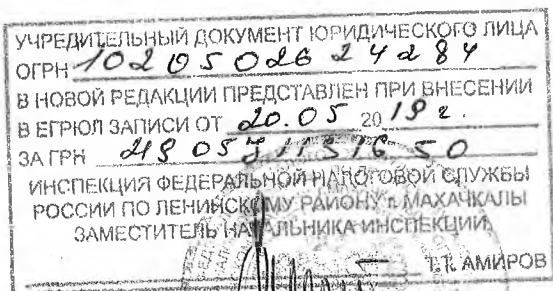 УЧРЕДИТЕЛЬНЫЙ ДОКУМЕНТ ЮРИДИЧЕСКОГО ЛИЦА
ОГРН 1020502624284
В НОВОЙ РЕДАКЦИИ ПРЕДСТАВЛЕН ПРИ ВНЕСЕНИИ
В ЕГРЮЛ ЗАПИСИ ОТ 20.05 2019 г.
ЗА ГРН
ИНСПЕКЦИЯ ФЕДЕРАЛЬНОЙ НАЛОГОВОЙ СЛУЖБЫ
РОССИИ ПО ЛЕНИНСКОМУ РАЙОНУ г. МАХАЧКАЛЫ
ЗАМЕСТИТЕЛЬ НАЧАЛЬНИКА ИНСПЕКЦИИ
АМИРОВ